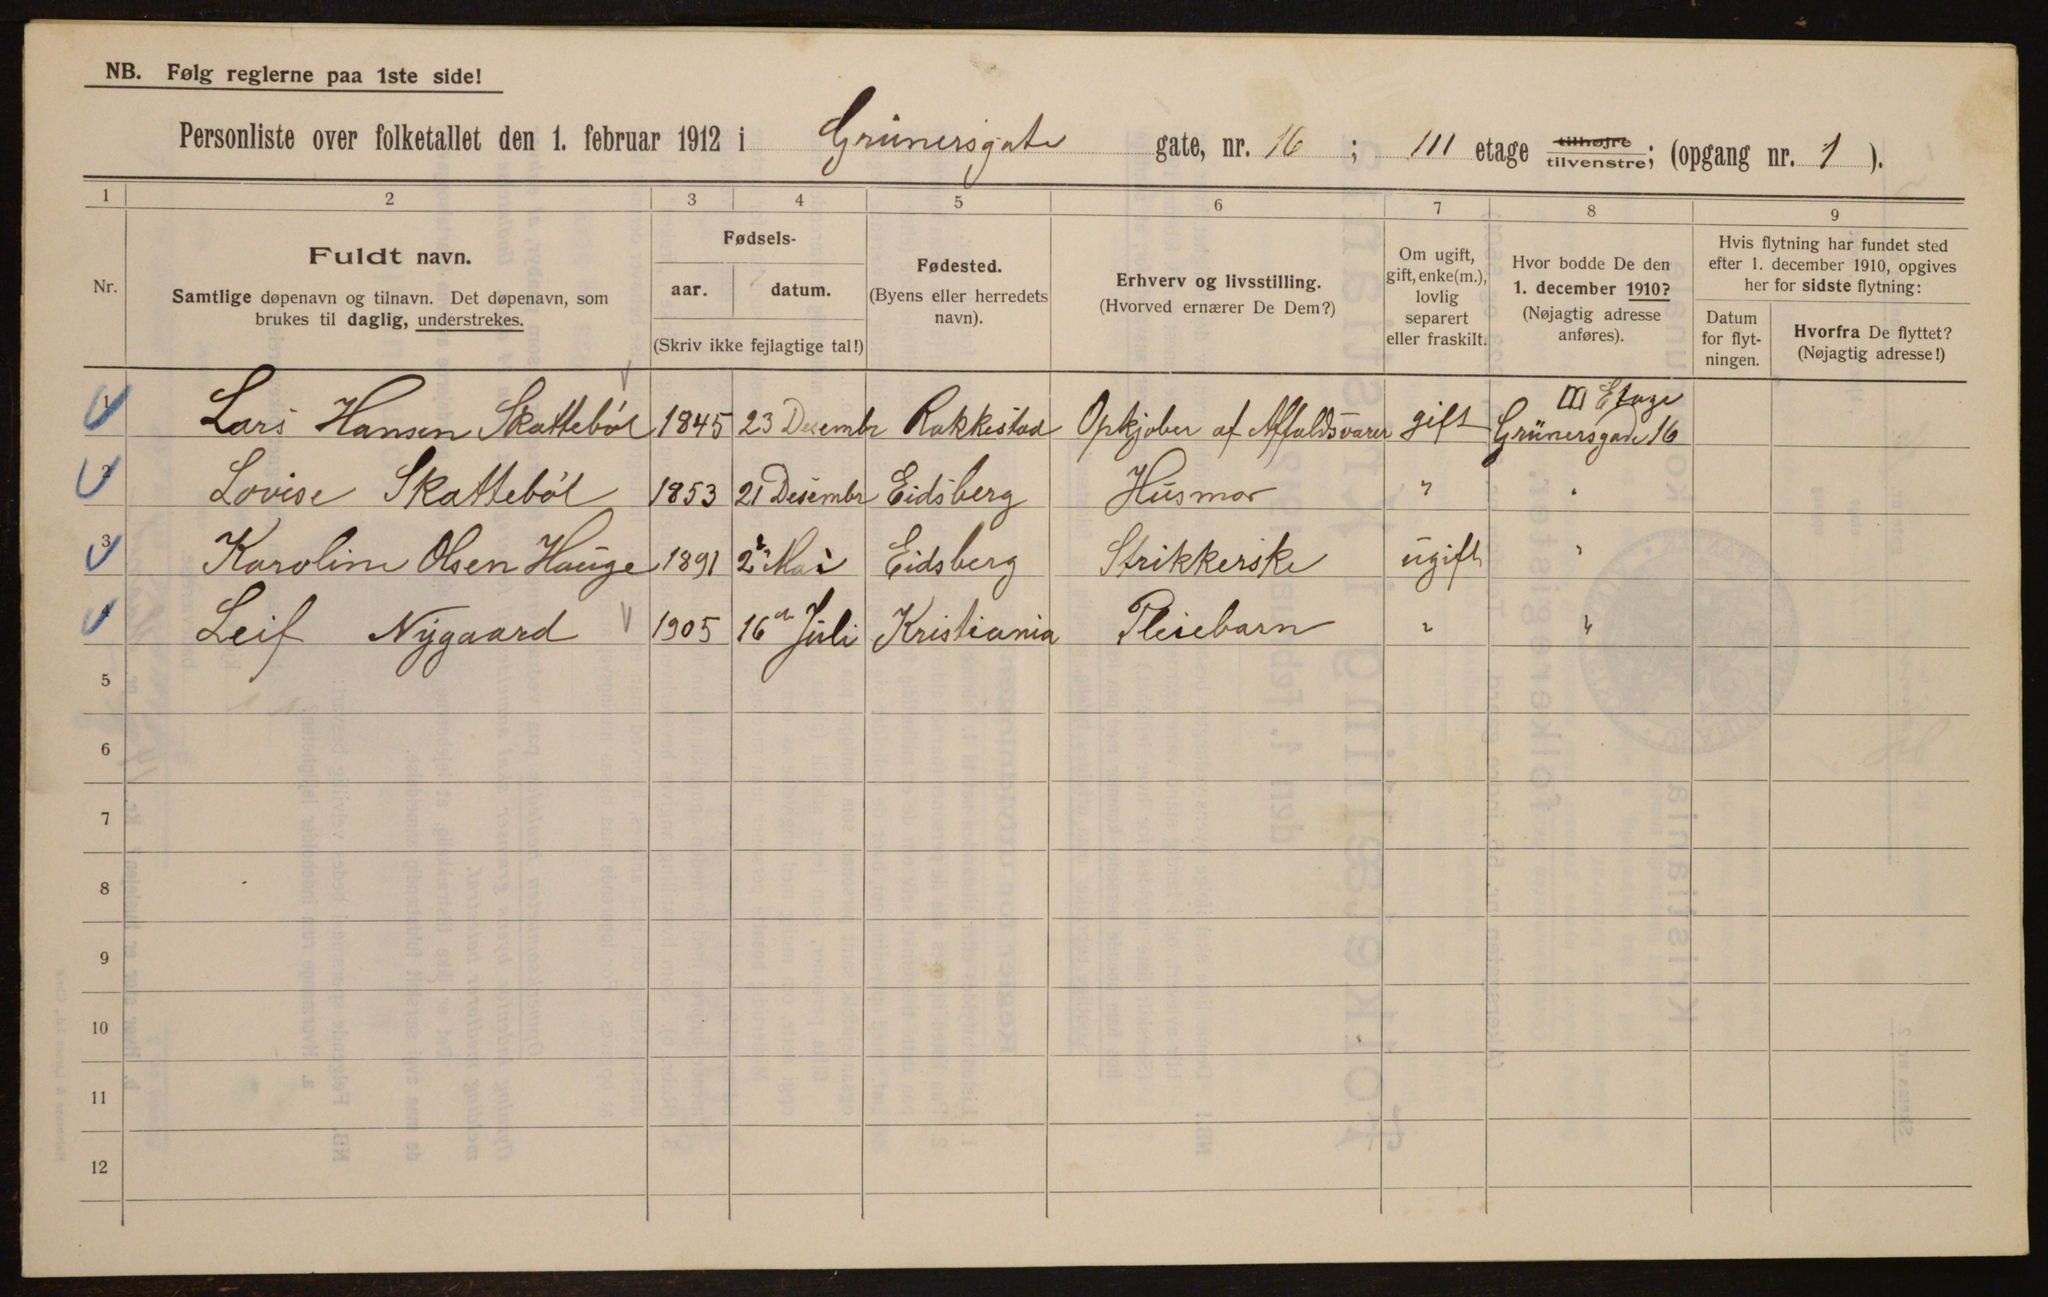 NB. Følg reglerne paa 1ste side!
Personliste over folketallet den 1. februar 1912 i Grünersgate gate, nr. 16; III etage tilhøjre tilvenstre; (opgang nr. 1).
1 2 3 4 5 6 7 8 9
Nr.
Fuldt navn.
Samtlige døpenavn og tilnavn. Det døpenavn, som
brukes til daglig, understrekes.
Fødsels-
aar. datum.
(Skriv ikke fejlagtige tal!)
Fødested.
(Byens eller herredets
navn).
Erhverv og livsstilling.
(Hvorved ernærer De Dem?)
Om ugift,
gift, enke(m.),
lovlig
separert
eller fraskilt.
Hvor bodde De den
1. december 1910?
(Nøjagtig adresse
anføres).
Hvis flytning har fundet sted
efter 1. december 1910, opgives
her for sidste flytning:
Datum
for flyt-
ningen.
Hvorfra De flyttet?
(Nøjagtig adresse!)
III Etage
1 Lars Hansen Skattebøl 1845 23 Desembr Rakkestad Opkjøber af Affaldsvarer gift Grünersgade 16
2 Lovise Skattebøl 1853 21 Desembr Eidsberg Husmor " "
3 Karoline Olsen Hauge 1891 2 Mai Eidsberg Strikkerske ugift "
4 Leif Nygaard 1905 16 Juli Kristiania Pleiebarn " "
5
6
7
8
9
10
11
12